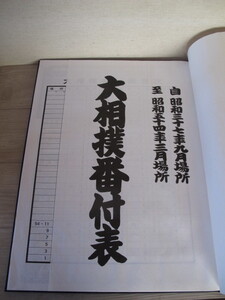 自 昭和三十七年九月場所
至 昭和五十四年三月場所
大相撲番付表